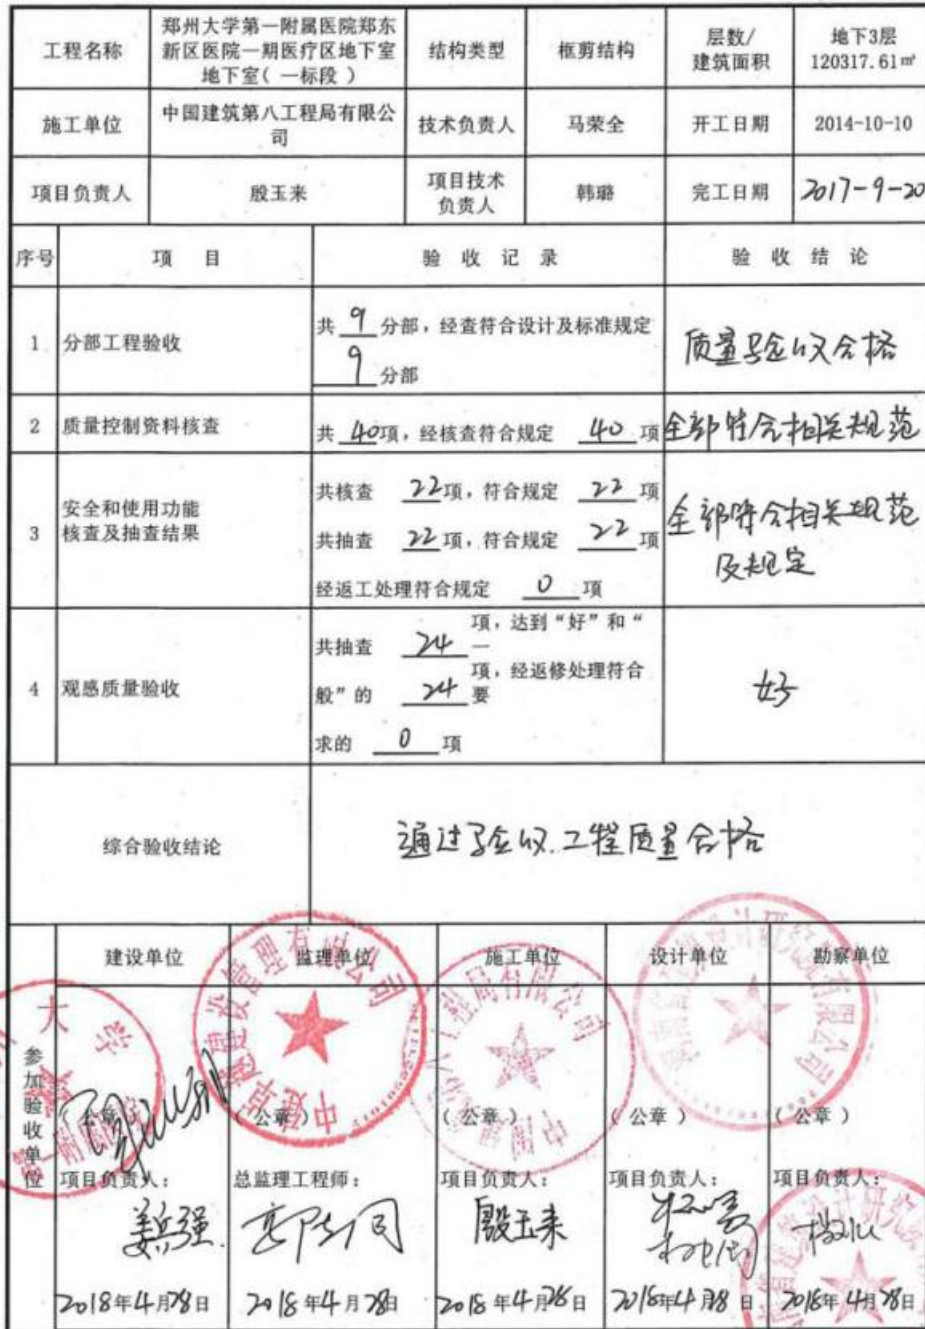 工程名称
郑州大学第一附属医院郑东
新区医院一期医疗区地下室
地下室( 一标段 )
结构类型
框剪结构
层数/
建筑面积
地下3层
120317.61㎡
施工单位
中国建筑第八工程局有限公
司
技术负责人
马荣全
开工日期
2014-10-10
项目负责人
殷玉来
项目技术
负责人
韩璐
完工日期
2017-9-20
序号
项 目
验 收 记 录
验 收 结 论
1
分部工程验收
共 9 分部，经查符合设计及标准规定
9 分部
质量验收合格
2
质量控制资料核查
共 40项，经核查符合规定 40 项
全部符合相关规范
3
安全和使用功能
核查及抽查结果
共核查 22项，符合规定 22 项
共抽查 22项，符合规定 22 项
经返工处理符合规定 0 项
全部符合相关规范
及规定
4
观感质量验收
共抽查 24 项，达到“好”和“一
般”的 24 项，经返修处理符合要
求的 0 项
好
综合验收结论
通过验收.工程质量合格
参加验收单位
建设单位
监理单位
施工单位
设计单位
勘察单位
(公章)
(公章)
(公章)
(公章)
(公章)
项目负责人：
总监理工程师：
项目负责人：
项目负责人：
项目负责人：
殷玉来
2018年4月28日
2018年4月28日
2018年4月28日
2018年4月28日
2018年4月28日